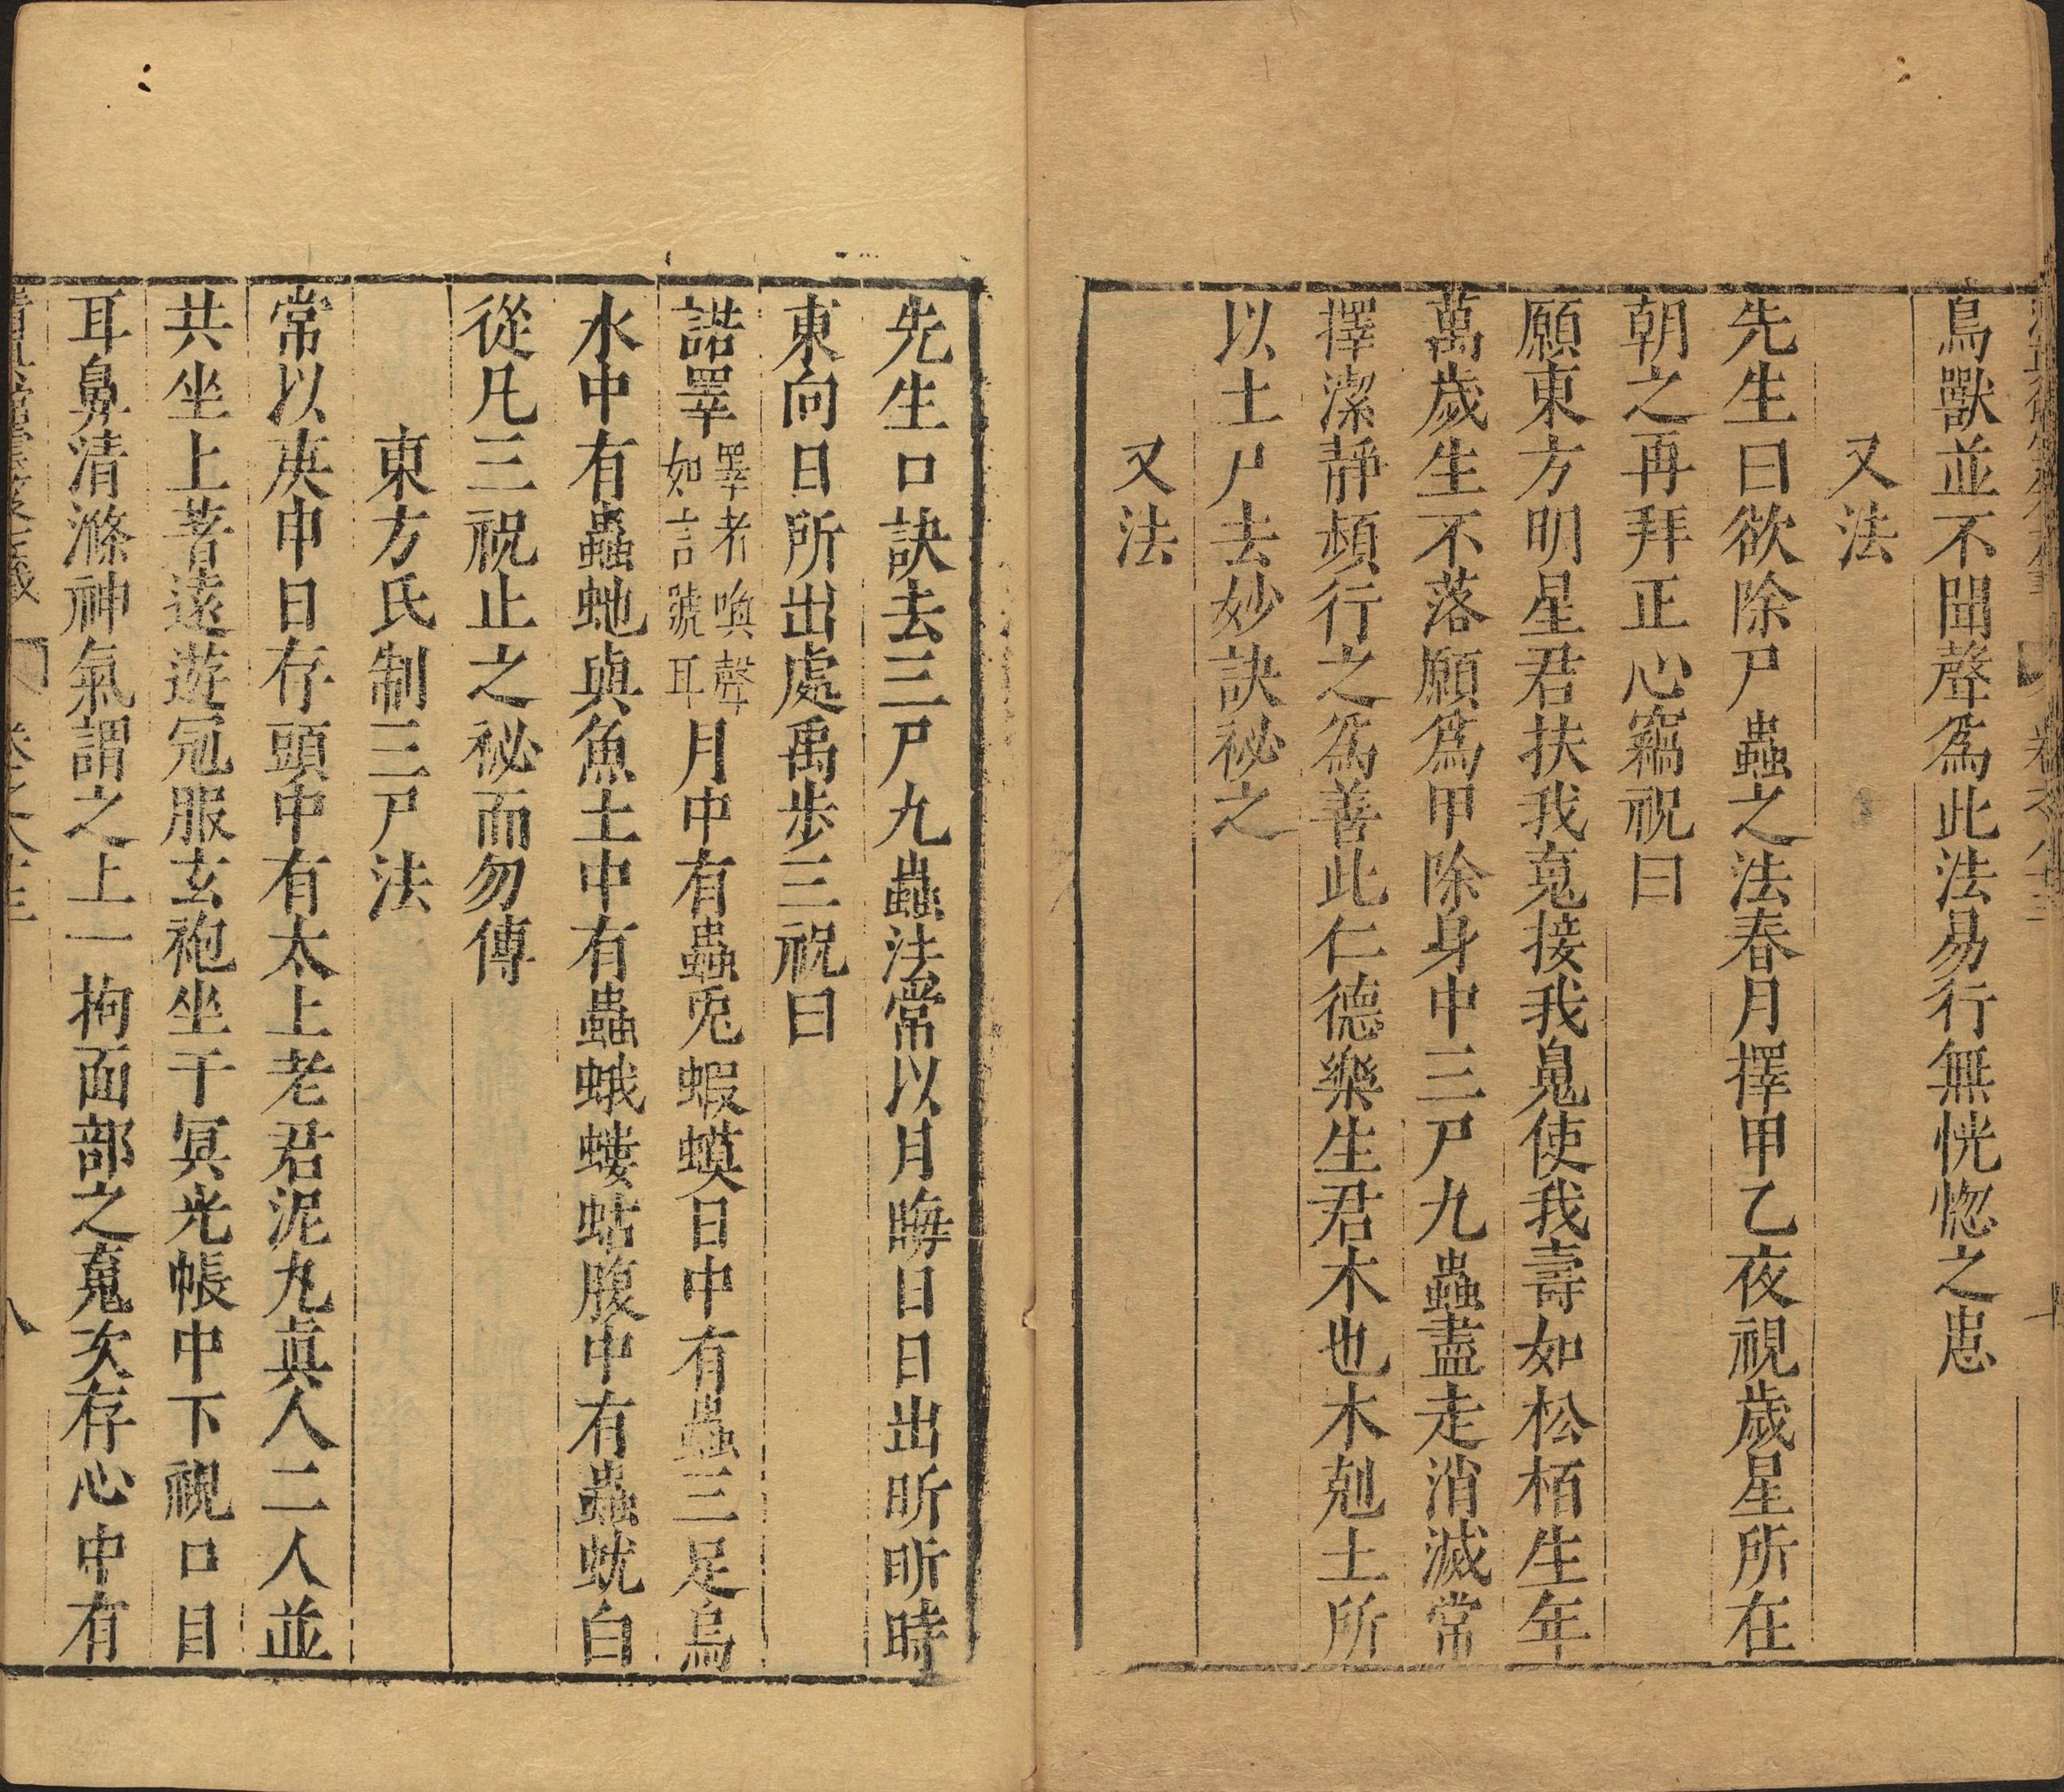 鳥獸並不聞聲爲此法易行無恍惚之患
又法
先生曰欲除尸蟲之法春月擇甲乙夜視歲星所在
朝之再拜正心竊祝曰
願東方明星君扶我䰟接我鬼使我壽如松栢生年
萬歲生不落願爲甲除身中三尸九蟲盡走消滅常
擇潔靜頻行之爲善此仁德樂生君木也木剋土所
以土尸去妙訣秘之
又法
先生口訣去三尸九蟲法常以月晦日日出昕昕時
東向日所出處禹步三祝曰
諾睪睪者喚聲如言號耳月中有蟲兎蝦蟆日中有蟲三足烏
水中有蟲虵與魚土中有蟲蛾螻蛄腹中有蟲蚘白
從凡三祝止之秘而勿傳
東方氏制三尸法
常以庚申日存頭中有太上老君泥丸眞人二人並
共坐上著遠遊冠服玄袍坐于冥光帳中下視口目
耳鼻清滌神氣謂之上一拘面部之䰟次存心中有
八